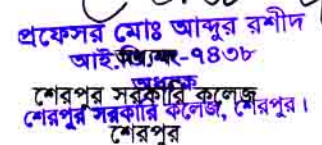 প্রফেসর মোঃ আব্দুর রশীদ
আই.ডি নং-৭৪৩৮
অধ্যক্ষ
শেরপুর সরকারি কলেজ
শেরপুর সরকারি কলেজ, শেরপুর।
শেরপুর